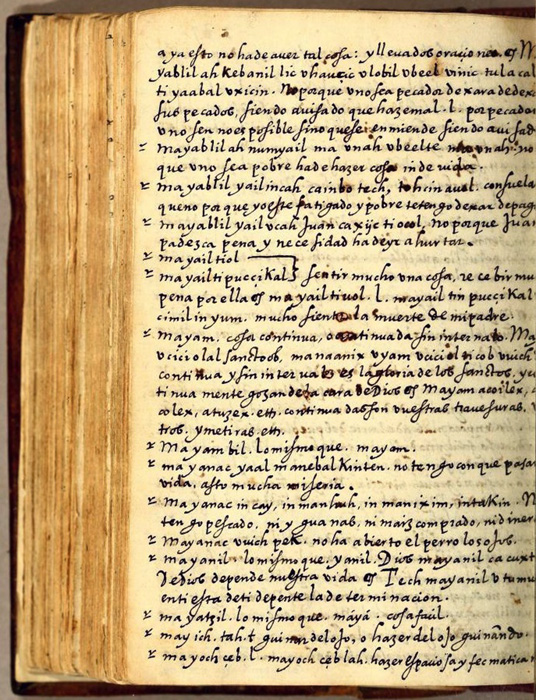 aya esto no ha de aver tal cosa: y llevados oraciones. es M
yablilah kebanil lic uhaucic ulobil ubeel uinic tula cal
ti yaabal uxicin. No porque uno sea pecador dexara dedex
sus pecados, siendo auisado que haze mal. l. por pecador
uno sea no es posible sino que se enmiende siendo aui sad
mayablilah numyail ma unah ubeelte no
que uno sea pobre ha de hazer cosa indeuida.
mayablil yailincah cainbo tech, consuela
queno por que yo este fatigado y pobre te tengo dexar depag
mayablil yail ucah Juan caxijc ti ocol, no porque Juan
padezca pena y necesidad ha de yr a hurtar.
mayailtiol
mayailtipuccikal} sentir mucho una cosa, recebir mu
pena por ella es mayailtiuol. l. mayail tin puccikal
cimil in yum. mucho siento la muerte de mi padre.
mayam. cosa continua, o continuada sin interualo. Ma
uciciolal sanctoob, manaamix uyam uciciol ticob uuich
continua y sin interualo es la gloria de los sanctos, y co
tinua mente gozan de la cara de Dios es Mayam acoilex,
colex, atuzex. eth. continuadas son vuestras trauesuras.
tros. y metiras. eth.
Mayambil. lo mismo que. mayam.
mayanac yaal manebal kinten. no tengo con que pasar
vida, asto mucha miseria.
Mayanac in cay, in manhuh, in manixim, intakin. N
tengo pescado, ni yguanas, ni maiz comprado, ni diner
Mayanac uuich pek. no ha abierto el perro los ojos.
mayanil. lo mismo que. yanil. Dios mayanil ca cuxt
De Dios depende nuestra vida es Tech mayanil u tumu
enti esta de ti depente la determinacion.
mayatzil. lo mismo que. máyá. cosa facil.
mayich. tah.t. guinar del ojo, o hazer del ojo guinando.
mayoch ceb. l. mayoch ceblah. hazer espaciosa y